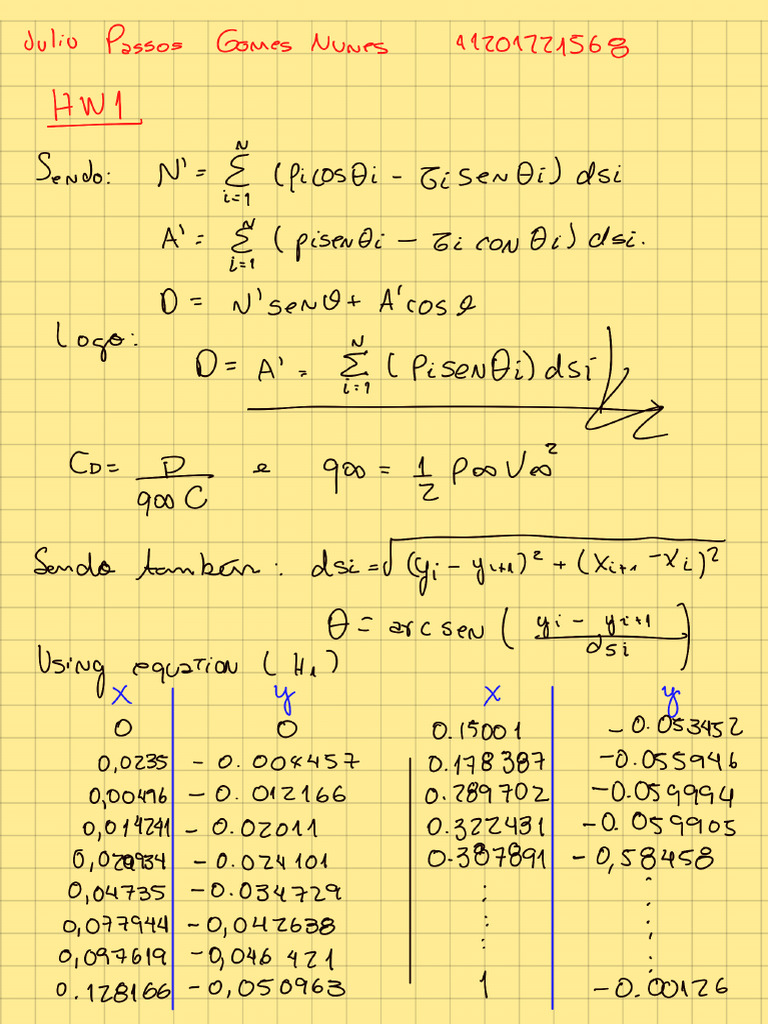 Julio Passos Gomes Nunes 11201721568
HW1
Sendo: N' = Σ_{i=1}^{N} (pi cosθi - τi senθi) dsi
A' = Σ_{i=1}^{N} (pi senθi - τi conθi) dsi.
D = N' senθ + A' cosθ
Logo:
D = A' = Σ_{i=1}^{N} (Pi senθi) dsi
CD = D / q∞ C e q∞ = 1/2 ρ∞ V∞²
Sendo também: dsi = √((yi - yi+1)² + (xi+1 - xi)²)
θ = arcsen( (yi - yi+1) / dsi )
Using equation (H1)
x y x y
0 0 0.15001 -0.053452
0,0235 -0.008457 0.178387 -0.055946
0,00496 -0.012166 0.289702 -0.059994
0,014241 -0.02011 0.322431 -0.059905
0,020934 -0.024101 0.387891 -0,58458
0,04735 -0.034729 : :
0,077944 -0,042638 : :
0,097619 -0,046421 : :
0.128166 -0,050963 1 -0.00126